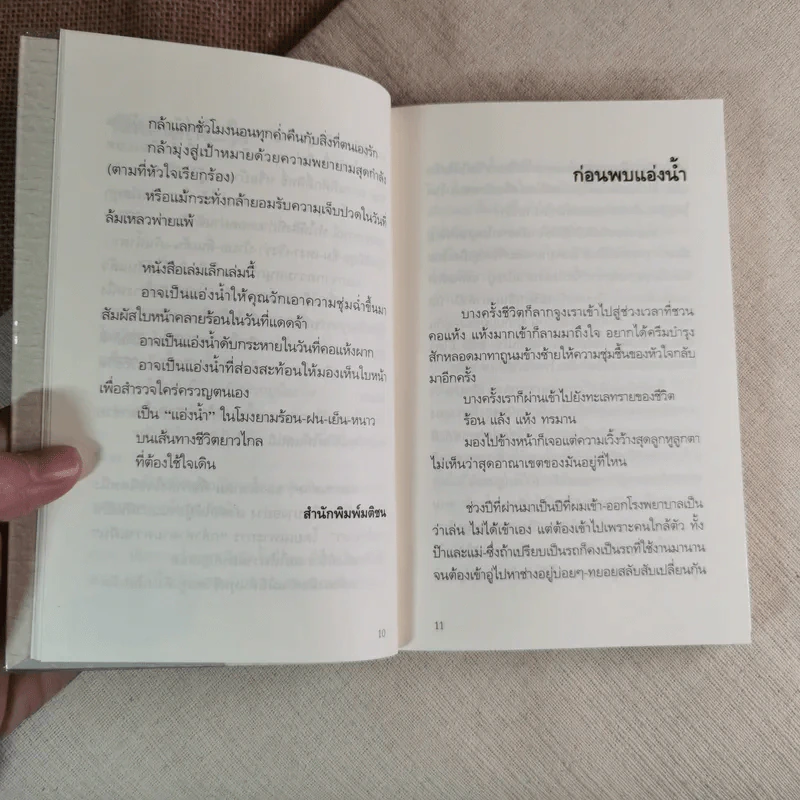 กล้าแลกชั่วโมงนอนทุกค่ำคืนกับสิ่งที่ตนเองรัก
กล้ามุ่งสู่เป้าหมายด้วยความพยายามสุดกำลัง
(ตามที่หัวใจเรียกร้อง)
หรือแม้กระทั่งกล้ายอมรับความเจ็บปวดในวันที่
ล้มเหลวพ่ายแพ้
หนังสือเล่มเล็กเล่มนี้
อาจเป็นแอ่งน้ำให้คุณวักเอาความชุ่มฉ่ำขึ้นมา
สัมผัสใบหน้าคลายร้อนในวันที่แดดจ้า
อาจเป็นแอ่งน้ำดับกระหายในวันที่คอแห้งผาก
อาจเป็นแอ่งน้ำที่ส่องสะท้อนให้มองเห็นใบหน้า
เพื่อสำรวจใคร่ครวญตนเอง
เป็น “แอ่งน้ำ” ในโมงยามร้อน-ฝน-เย็น-หนาว
บนเส้นทางชีวิตยาวไกล
ที่ต้องใช้ใจเดิน
สำนักพิมพ์มติชน
10
ก่อนพบแอ่งน้ำ
บางครั้งชีวิตก็ลากจูงเราเข้าไปสู่ช่วงเวลาที่ชวน
คอแห้ง แห้งมากเข้าก็ลามมาถึงใจ อยากได้ครีมบำรุง
สักหลอดมาทาถูนมข้างซ้ายให้ความชุ่มชื้นของหัวใจกลับ
มาอีกครั้ง
บางครั้งเราก็ผ่านเข้าไปยังทะเลทรายของชีวิต
ร้อน แล้ง แห้ง ทรมาน
มองไปข้างหน้าก็เจอแต่ความเวิ้งว้างสุดลูกหูลูกตา
ไม่เห็นว่าสุดอาณาเขตของมันอยู่ที่ไหน
ช่วงปีที่ผ่านมาเป็นปีที่ผมเข้า-ออกโรงพยาบาลเป็น
ว่าเล่น ไม่ได้เข้าเอง แต่ต้องเข้าไปเพราะคนใกล้ตัว ทั้ง
ป๊าและแม่-ซึ่งถ้าเปรียบเป็นรถก็คงเป็นรถที่ใช้งานมานาน
จนต้องเข้าอู่ไปหาช่างอยู่บ่อยๆ-ทยอยสลับสับเปลี่ยนกัน
11